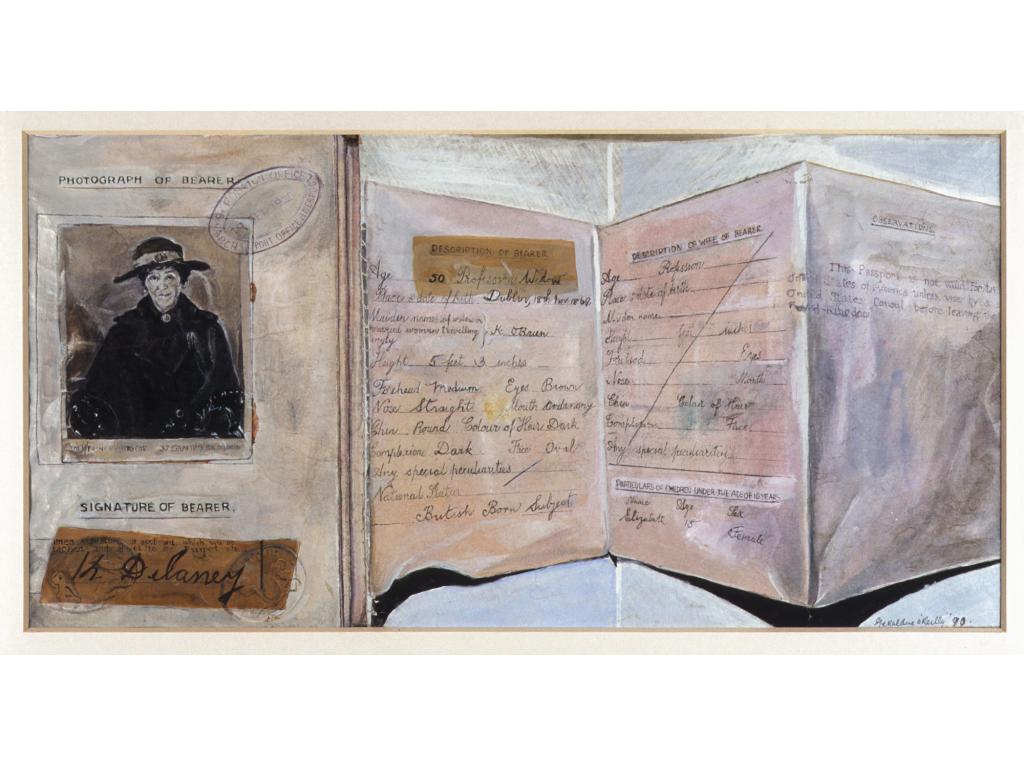 PHOTOGRAPH OF BEARER
SIGNATURE OF BEARER.
K Delaney
DESCRIPTION OF BEARER
Age 50 Profession Widow
Place & date of birth Dublin, 18th Nov. 1868
Maiden name if widow or
married woman travelling K. O'Brien
singly
Height 5 feet 3 inches
Forehead Medium Eyes Brown
Nose Straight Mouth Ordinary
Chin Round Colour of Hair Dark
Complexion Dark Face Oval
Any special peculiarities
National Status
British Born Subject
DESCRIPTION OF WIFE OF BEARER
Age Profession
Place & date of birth
Maiden name
Height feet inches
Forehead Eyes
Nose Mouth
Chin Colour of Hair
Complexion Face
Any special peculiarities
PARTICULARS OF CHILDREN UNDER THE AGE OF 16 YEARS
Name Age Sex
Elizabeth 15
Female
OBSERVATIONS
This Passport is not valid for the
United States of America unless vise by a
United States Consul before leaving the
Geraldine O'Reilly '90.